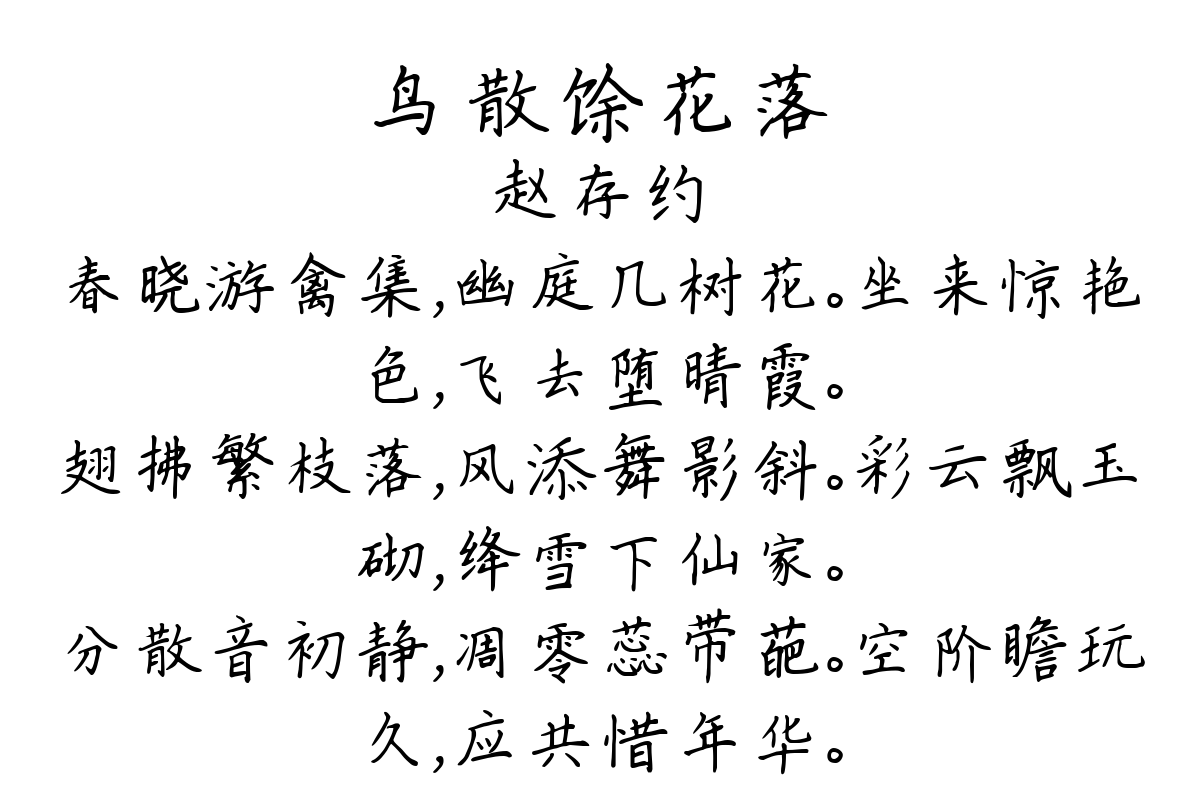 鸟散馀花落
赵存约
春晓游禽集,幽庭几树花。坐来惊艳
色,飞去堕晴霞。
翅拂繁枝落,风添舞影斜。彩云飘玉
砌,绛雪下仙家。
分散音初静,凋零蕊带葩。空阶瞻玩
久,应共惜年华。